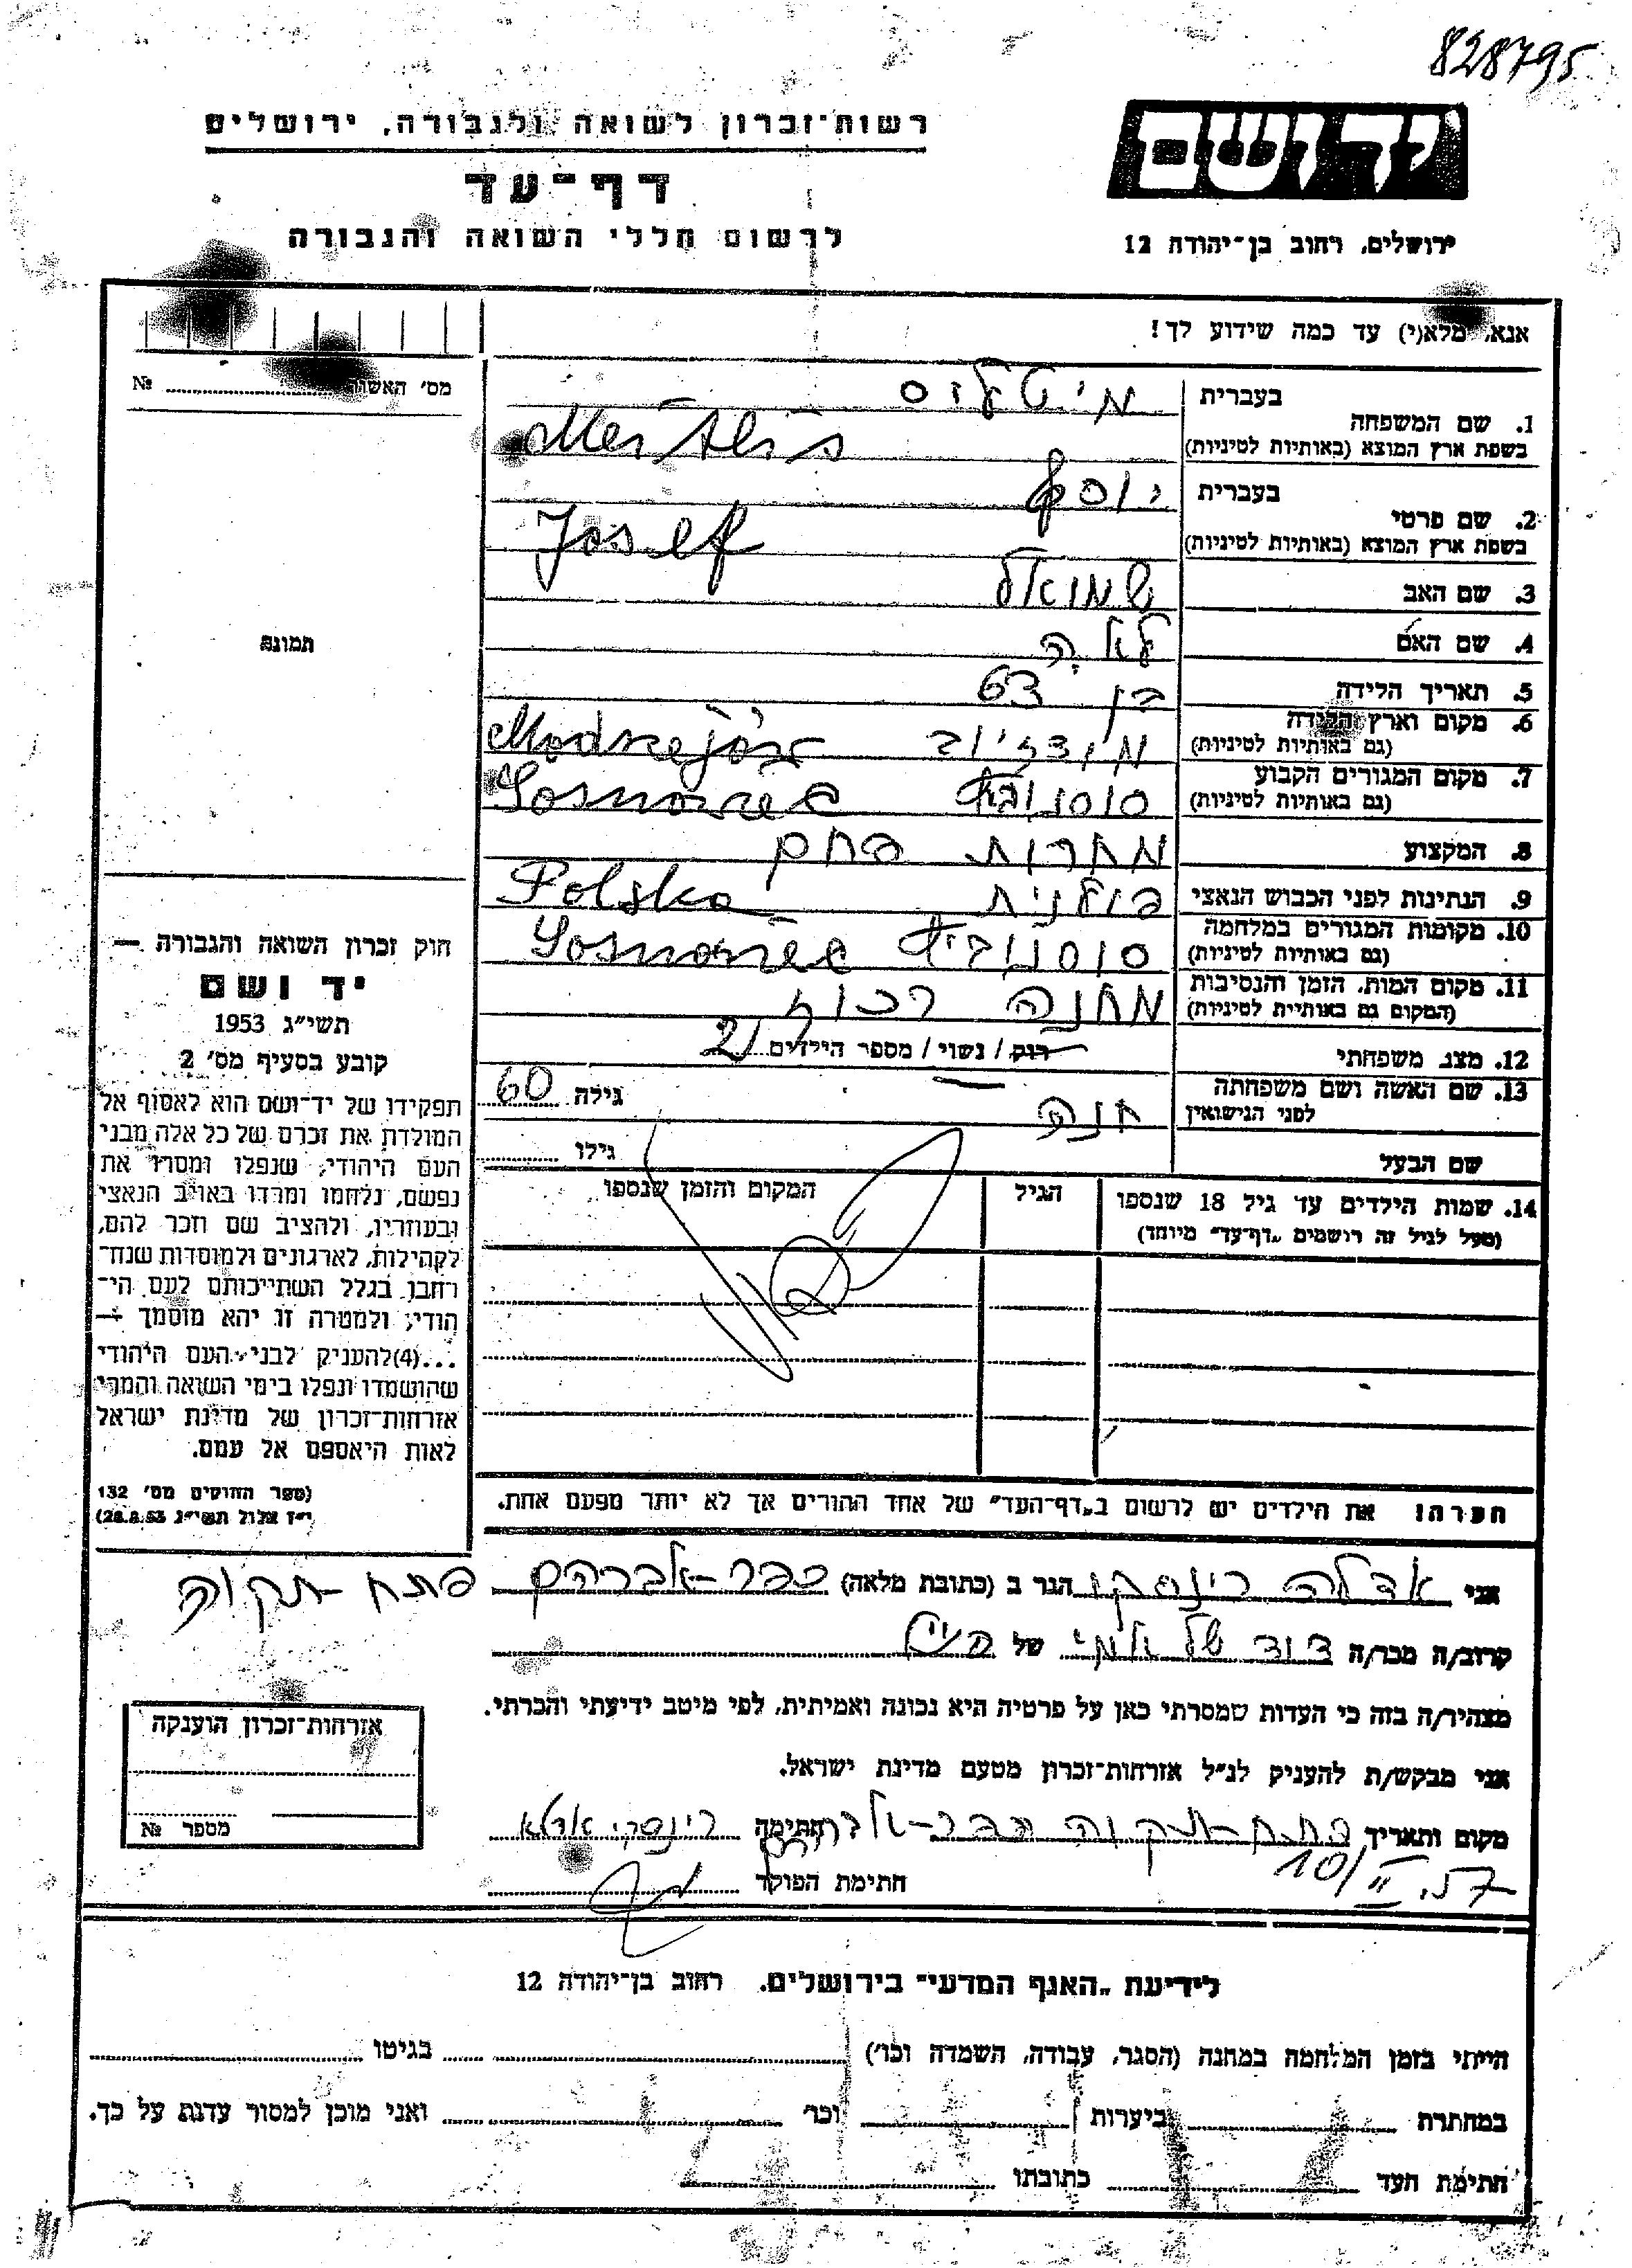 828795
רשות־זכרון לשואה ולגבורה, ירושלים
יד ושם
דף־עד
לרשום חללי השואה והגבורה
ירושלים, רחוב בן־יהודה 12
אנא, מלא(י) עד כמה שידוע לך!
מס' האשור № 
1. שם המשפחה בעברית
בשפת ארץ המוצא (באותיות לטיניות)
2. שם פרטי בעברית יוסף
בשפת ארץ המוצא (באותיות לטיניות) Josef
3. שם האב שמואל
4. שם האם לאה
תמונה
5. תאריך הלידה בן 63
6. מקום וארץ הלידה
(גם באותיות לטיניות) Modrzejów
7. מקום המגורים הקבוע
(גם באותיות לטיניות) סוסנוביץ Sosnowiec
8. המקצוע פחם
9. הנתינות לפני הכבוש הנאצי פולנית Polska
10. מקומות המגורים במלחמה
(גם באותיות לטיניות) סוסנוביץ Sosnowiec
11. מקום המות, הזמן והנסיבות
(המקום גם באותיות לטיניות) מחנה רכוז
12. מצב משפחתי רוק / נשוי / מספר הילדים 2
13. שם האשה ושם משפחתה
לפני הנישואין חנה גילה 60
שם הבעל גילו
14. שמות הילדים עד גיל 18 שנספו הגיל המקום והזמן שנספו
(מעל לגיל זה רושמים "דף־עד" מיוחד)
חוק זכרון השואה והגבורה —
יד ושם
תשי"ג 1953
קובע בסעיף מס' 2
תפקידו של יד־ושם הוא לאסוף אל
המולדת את זכרם של כל אלה מבני
העם היהודי, שנפלו ומסרו את
נפשם, נלחמו ומרדו באויב הנאצי
ובעוזריו, ולהציב שם וזכר להם,
לקהילות, לארגונים ולמוסדות שנח־
רחבו בגלל השתייכותם לעם הי־
הודי; ולמטרה זו יהא מוסמך —
...(4)להעניק לבני העם היהודי
שהושמדו ונפלו בימי השואה והמרי
אזרחות־זכרון של מדינת ישראל
לאות היאספם אל עמם.
(ספר החוקים מס' 132
י"ז אלול תשי"ג 28.8.53)
הערה! את הילדים יש לרשום ב"דף־העד" של אחד ההורים אך לא יותר מפעם אחת.
אני הגר ב (כתובת מלאה) כפר-אברהם פתח-תקוה
קרוב/ה מכר/ה דוד של אמי של
מצהיר/ה בזה כי העדות שמסרתי כאן על פרטיה היא נכונה ואמיתית, לפי מיטב ידיעתי והכרתי.
אני מבקש/ת להעניק לנ"ל אזרחות־זכרון מטעם מדינת ישראל.
אזרחות־זכרון הוענקה
מספר №
מקום ותאריך פתח-תקוה כפר-אברהם חתימה
10/II 57
חתימת הפוקד
לידיעת "האגף המדעי" בירושלים, רחוב בן־יהודה 12
הייתי בזמן המלחמה במחנה (הסגר, עבודה, השמדה וכו') בגיטו
במחתרת ביערות וכו' ואני מוכן למסור עדות על כך.
חתימת העד כתובתו